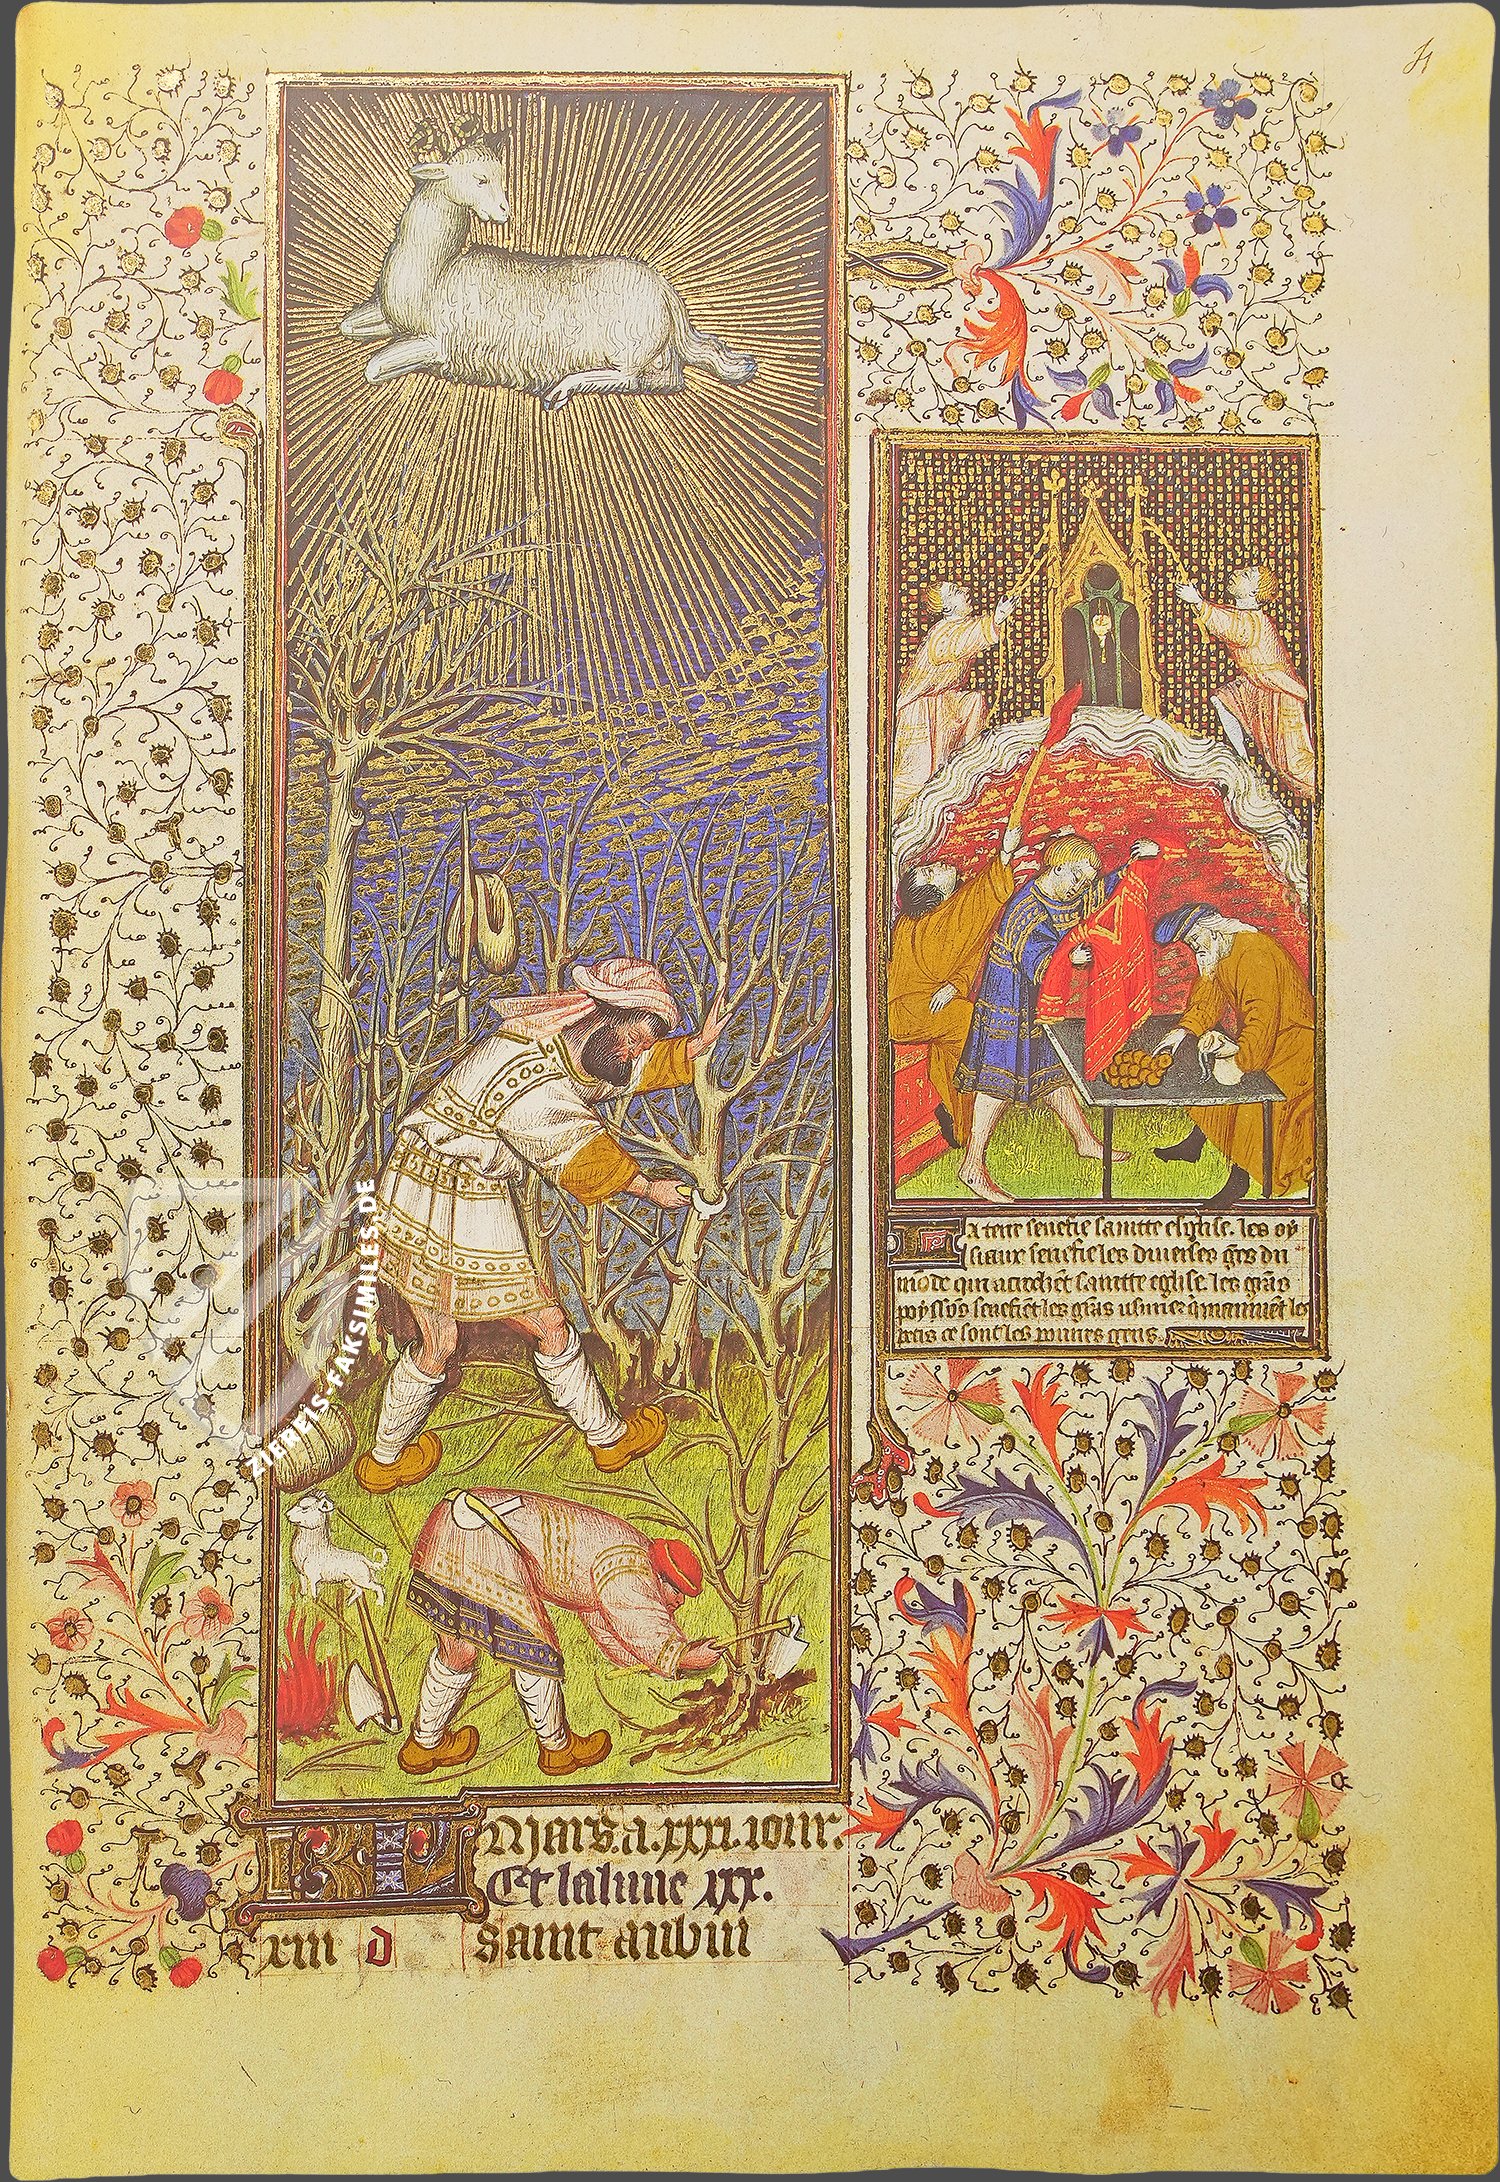 La terre senefie saintte esglise. les oy
siaux senefie les diverses gēs du
mōde qui acrochēt saintte eglise. les grās
poyssōs senefiēt les grās usurier qi maniuēt les
petis ce sont les povres gens.
KL Mars. a. xxxi. iour.
Et la lune xxx.
xiii d Saint aubin
ZIEREIS-FAKSIMILES.DE